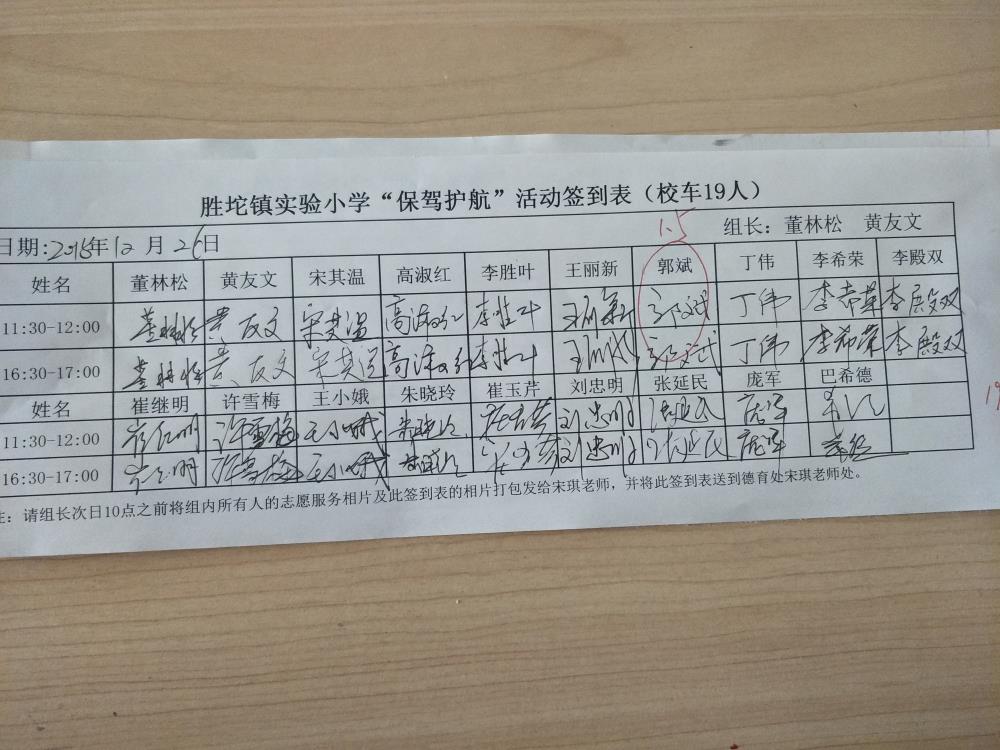 胜坨镇实验小学“保驾护航”活动签到表（校车19人）
日期:2018年12月26日 1.5 组长：董林松 黄友文
姓名 董林松 黄友文 宋其温 高淑红 李胜叶 王丽新 郭斌 丁伟 李希荣 李殿双
11:30-12:00 董林松 黄友文 宋其温 高淑红 李胜叶 王丽新 丁伟 李希荣 李殿双
16:30-17:00 董林松 黄友文 宋其温 高淑红 李胜叶 丁伟 李希荣 李殿双
姓名 崔继明 许雪梅 王小娥 朱晓玲 崔玉芹 刘忠明 张延民 庞军 巴希德
19
11:30-12:00 崔仁明 许雪梅 王小娥 朱晓玲 崔玉芹 刘忠明 张延民 庞军
16:30-17:00 许雪梅 王小娥 刘忠明 张延民 庞军
注：请组长次日10点之前将组内所有人的志愿服务相片及此签到表的相片打包发给宋琪老师，并将此签到表送到德育处宋琪老师处。